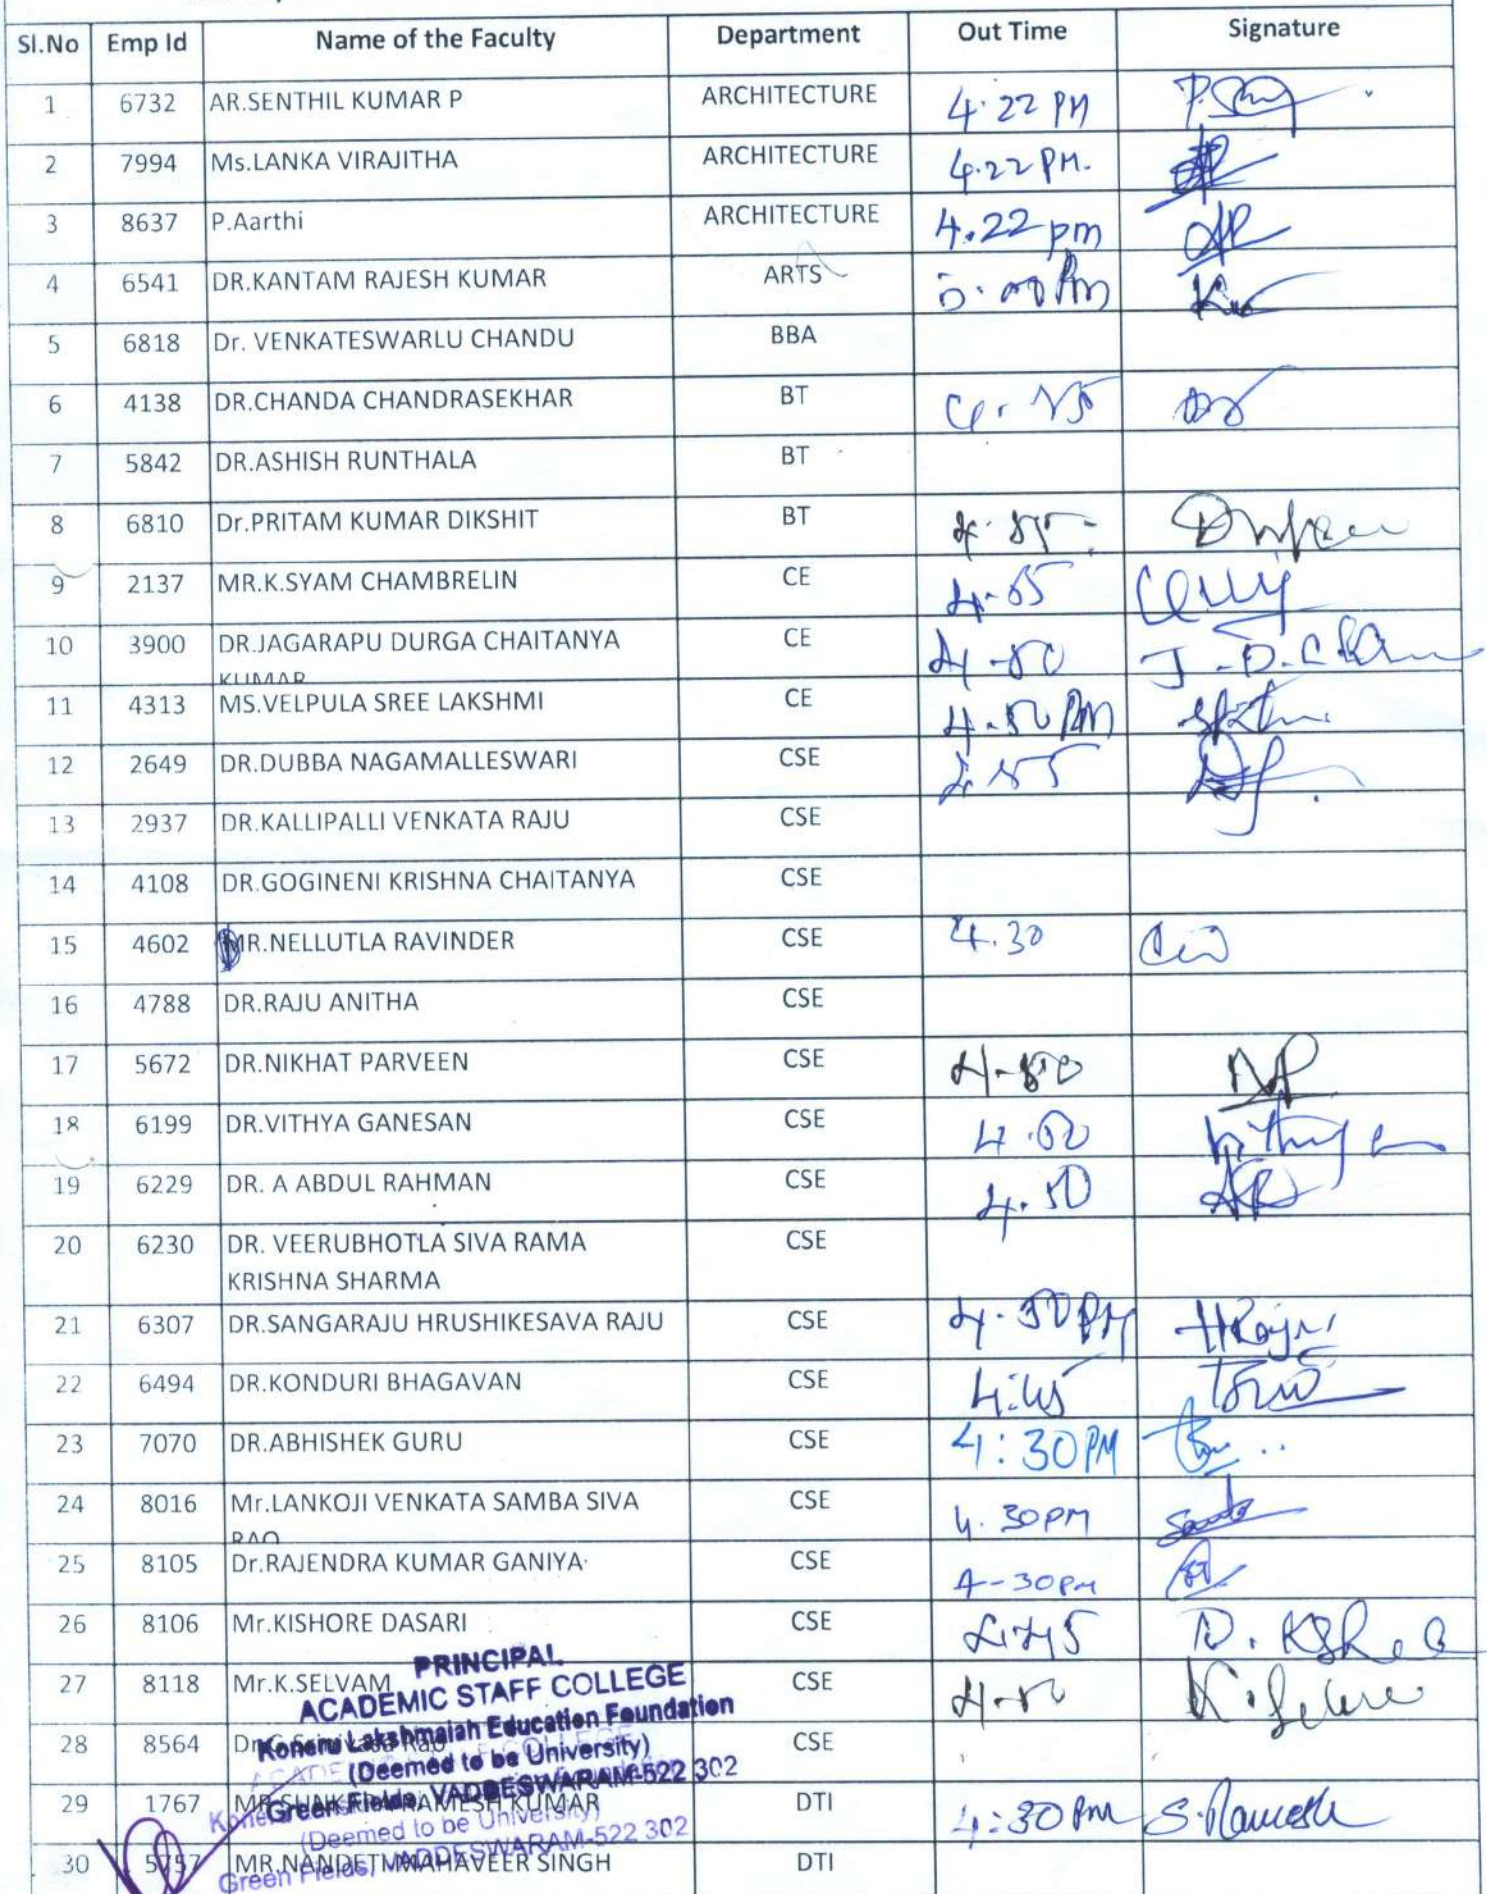 Sl.No Emp Id Name of the Faculty Department Out Time Signature
1 6732 AR.SENTHIL KUMAR P ARCHITECTURE 4.22 PM
2 7994 Ms.LANKA VIRAJITHA ARCHITECTURE 4.22 PM.
3 8637 P.Aarthi ARCHITECTURE 4.22 pm
4 6541 DR.KANTAM RAJESH KUMAR ARTS
5 6818 Dr. VENKATESWARLU CHANDU BBA
6 4138 DR.CHANDA CHANDRASEKHAR BT
7 5842 DR.ASHISH RUNTHALA BT
8 6810 Dr.PRITAM KUMAR DIKSHIT BT
9 2137 MR.K.SYAM CHAMBRELIN CE
10 3900 DR.JAGARAPU DURGA CHAITANYA CE
KUMAR
11 4313 MS.VELPULA SREE LAKSHMI CE 4.50 PM
12 2649 DR.DUBBA NAGAMALLESWARI CSE
13 2937 DR.KALLIPALLI VENKATA RAJU CSE
14 4108 DR.GOGINENI KRISHNA CHAITANYA CSE
15 4602 MR.NELLUTLA RAVINDER CSE 4.30
16 4788 DR.RAJU ANITHA CSE
17 5672 DR.NIKHAT PARVEEN CSE 4-50
18 6199 DR.VITHYA GANESAN CSE
19 6229 DR. A ABDUL RAHMAN CSE 4.50
20 6230 DR. VEERUBHOTLA SIVA RAMA CSE
KRISHNA SHARMA
21 6307 DR.SANGARAJU HRUSHIKESAVA RAJU CSE 4.50PM HRaju
22 6494 DR.KONDURI BHAGAVAN CSE 4:45
23 7070 DR.ABHISHEK GURU CSE 4:30PM
24 8016 Mr.LANKOJI VENKATA SAMBA SIVA CSE 4.30PM
RAO
25 8105 Dr.RAJENDRA KUMAR GANIYA CSE 4-30PM
26 8106 Mr.KISHORE DASARI CSE 4:45
27 8118 Mr.K.SELVAM CSE
28 8564 CSE
29 1767 RAMESH KUMAR DTI 4:30 Pm S.Ramesh
30 MAHAVEER SINGH DTI
PRINCIPAL
ACADEMIC STAFF COLLEGE
Koneru Lakshmaiah Education Foundation
(Deemed to be University)
Green Fields, VADDESWARAM-522 302
(Deemed to be University)
Green Fields, VADDESWARAM-522 302